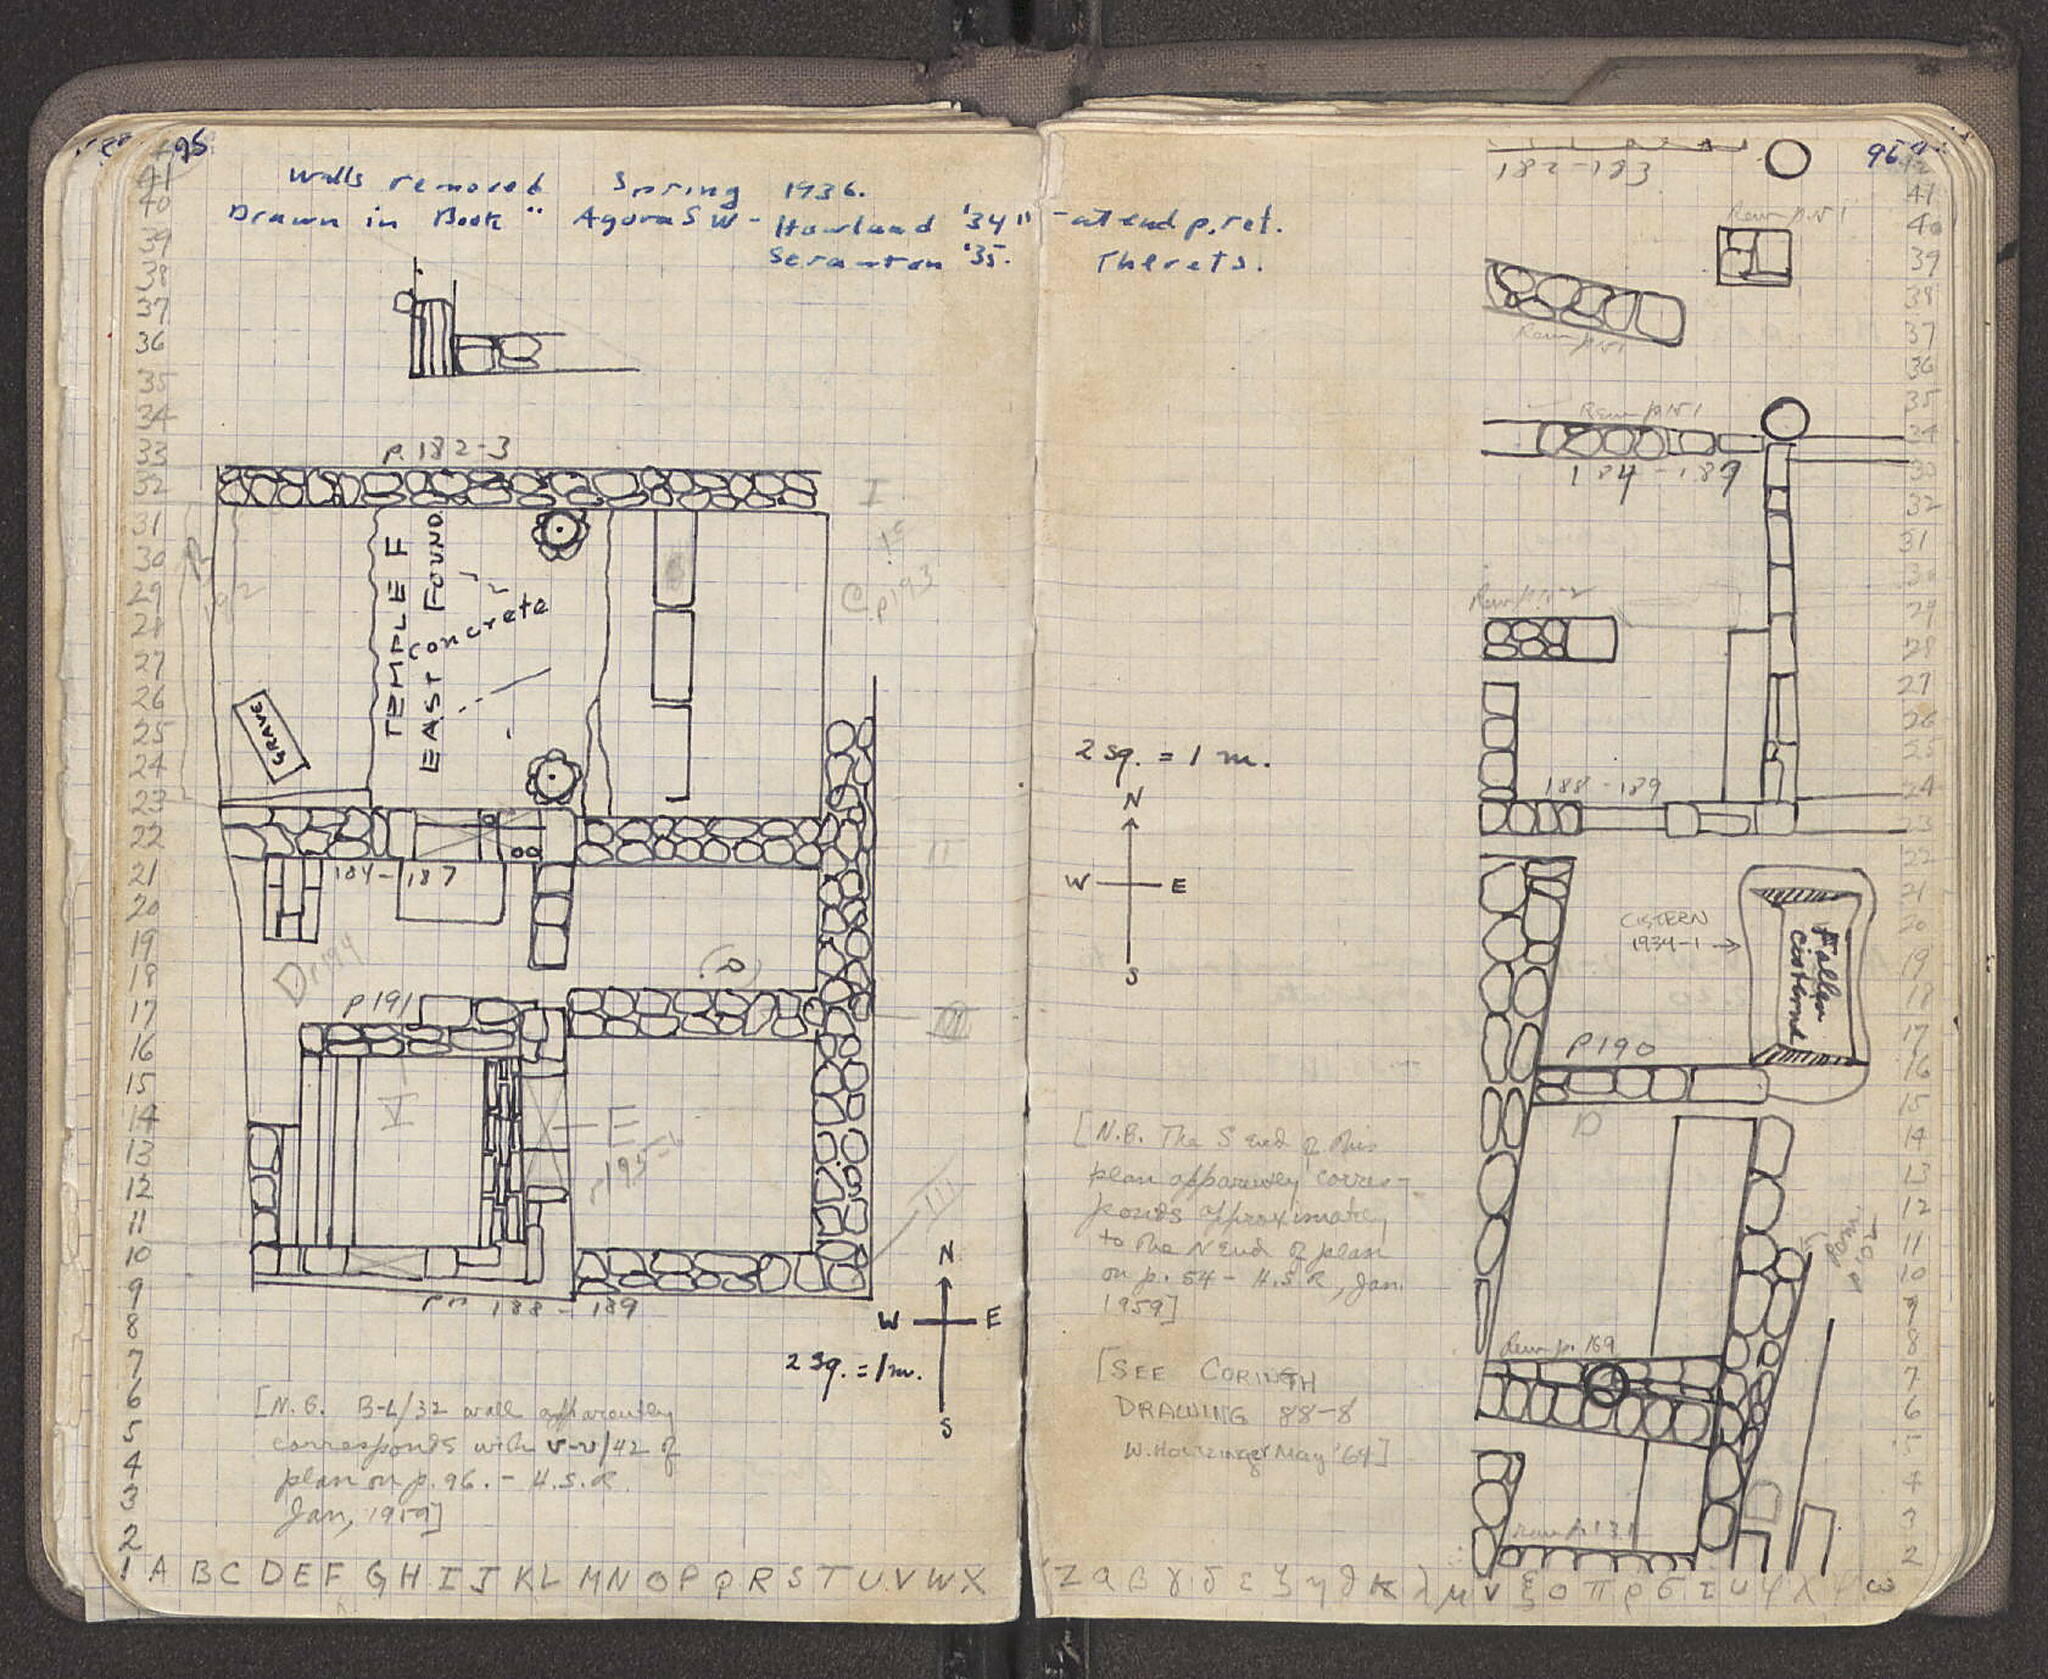 95
Walls removed Spring 1936.
Drawn in Book "Agora SW - Howland '34" - at end p. ref.
Scranton '35. Therets.
p. 182-3
I
TEMPLE F
EAST FOUND.
Concrete
GRAVE
C p193
II
184-187
(D)
p191
III
V
E
p195
III
pp 188-189
N
W E
S
2 sq. = 1 m.
[N.B. B-L/32 wall apparently
corresponds with ν-υ/42 of
plan on p. 96. - H.S.R.
Jan, 1959]
41
40
39
38
37
36
35
34
33
32
31
30
29
28
27
26
25
24
23
22
21
20
19
18
17
16
15
14
13
12
11
10
9
8
7
6
5
4
3
2
1 A B C D E F G H I J K L M N O P Q R S T U V W X
96
182-183
Rem p. 151
Rem p. 151
Rem p. 151
184-189
2 sq. = 1 m.
N
W E
S
188-189
CISTERN
1934-1 →
Fallen
cistern
P190
D
[N.B. The S end of this
plan apparently corres-
ponds approximately
to the N end of plan
on p. 54 - H.S.R., Jan.
1959]
Rem p. 169
[SEE CORINTH
DRAWING 88-8
W. Houzinger May '64]
42
41
40
39
38
37
36
35
34
33
32
31
30
29
28
27
26
25
24
23
22
21
20
19
18
17
16
15
14
13
12
11
10
9
8
7
6
5
4
3
2
Z α β γ δ ε ζ η θ κ λ μ ν ξ ο π ρ σ τ υ φ χ ψ ω